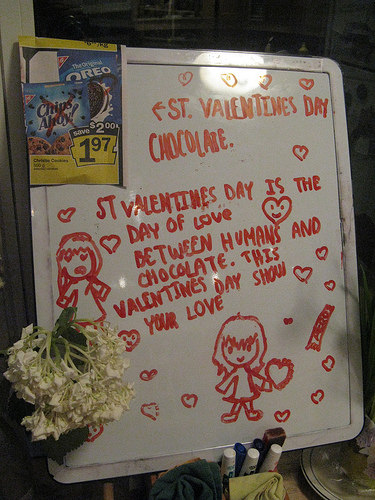 The Original
OREO
Chips
Ahoy!
save $2.00
1.97
Christie Cookies
←ST. VALENTINES DAY
CHOCOLATE.
ST VALENTINES DAY IS THE
DAY OF LOVE
BETWEEN HUMANS AND
CHOCOLATE. THIS
VALENTINES DAY SHOW
YOUR LOVE